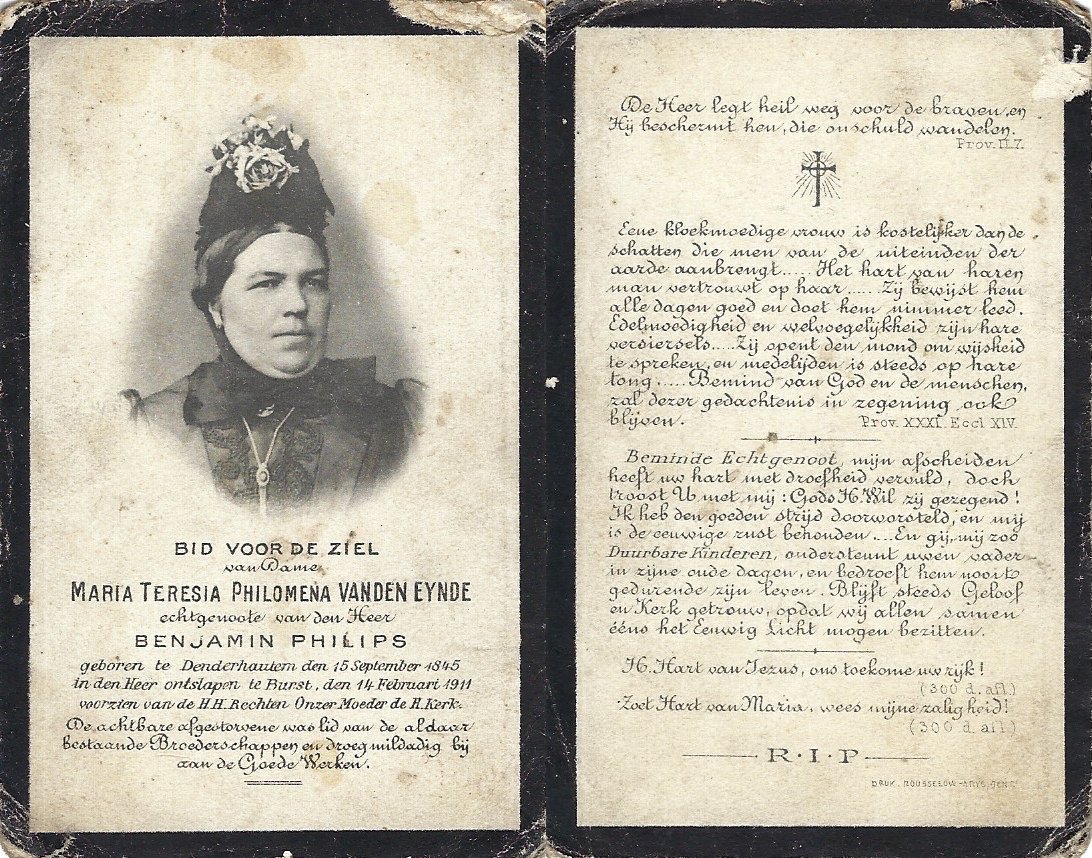 BID VOOR DE ZIEL
van Dame
MARIA TERESIA PHILOMENA VANDEN EYNDE
echtgenoote van den Heer
BENJAMIN PHILIPS
geboren te Denderhautem den 15 September 1845
in den Heer ontslapen te Burst, den 14 Februari 1911
voorzien van de H.H. Rechten Onzer Moeder de H. Kerk.
De achtbare afgestorvene was lid van de aldaar
bestaande Broederschappen en droeg mildadig bij
aan de Goede Werken.
De Heer legt heil weg voor de braven, en
Hij beschermt hen, die onschuld wandelen.
Prov. II. 7.
Eene kloekmoedige vrouw is kostelijker dan de
schatten die men van de uiteinden der
aarde aanbrengt..... Het hart van haren
man vertrouwt op haar...... Zij bewijst hem
alle dagen goed en doet hem nimmer leed.
Edelmoedigheid en welvoegelijkheid zijn hare
versiersels.....Zij opent den mond om wijsheid
te spreken, en medelijden is steeds op hare
tong...... Bemind van God en de menschen,
zal dezer gedachtenis in zegening ook
blijven. Prov. XXXI. Eccl XIV.
Beminde Echtgenoot, mijn afscheiden
heeft uw hart met droefheid vervuld, doch
troost U met mij : Gods H. Wil zij gezegend !
Ik heb den goeden strijd doorworsteld, en mij
is de eeuwige rust behouden ... En gij, mij zoo
Duurbare Kinderen, ondersteunt uwen vader
in zijne oude dagen, en bedroeft hem nooit
gedurende zijn leven. Blijft steeds Geloof
en Kerk getrouw, opdat wij allen samen
ééns het Eeuwig Licht mogen bezitten.
H. Hart van Jezus, ons toekome uw rijk !
(300 d. afl.)
Zoet Hart van Maria, wees mijne zaligheid !
(300 d. afl.)
R. I. P
DRUK. ROUSSELOW-ARYS, GENT